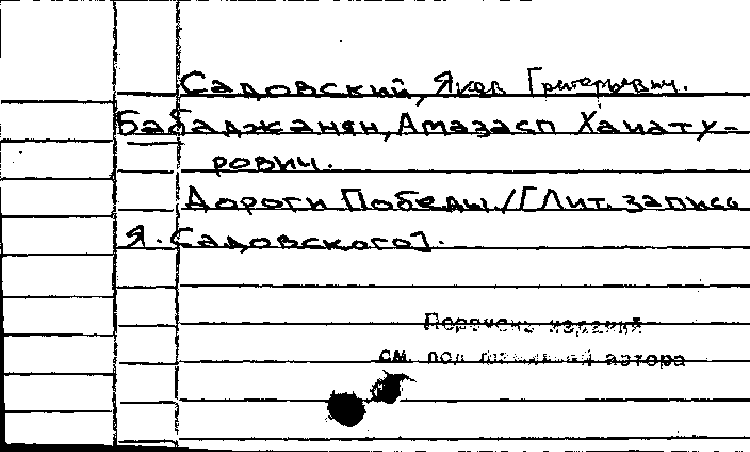 Садовский, Яков Григорьевич.
Бабаджанян, Амазасп Хачату-
рович.
Дороги Победы. / [Лит. запись
Я. Садовского].
Перечень изданий
см. под фамилией автора